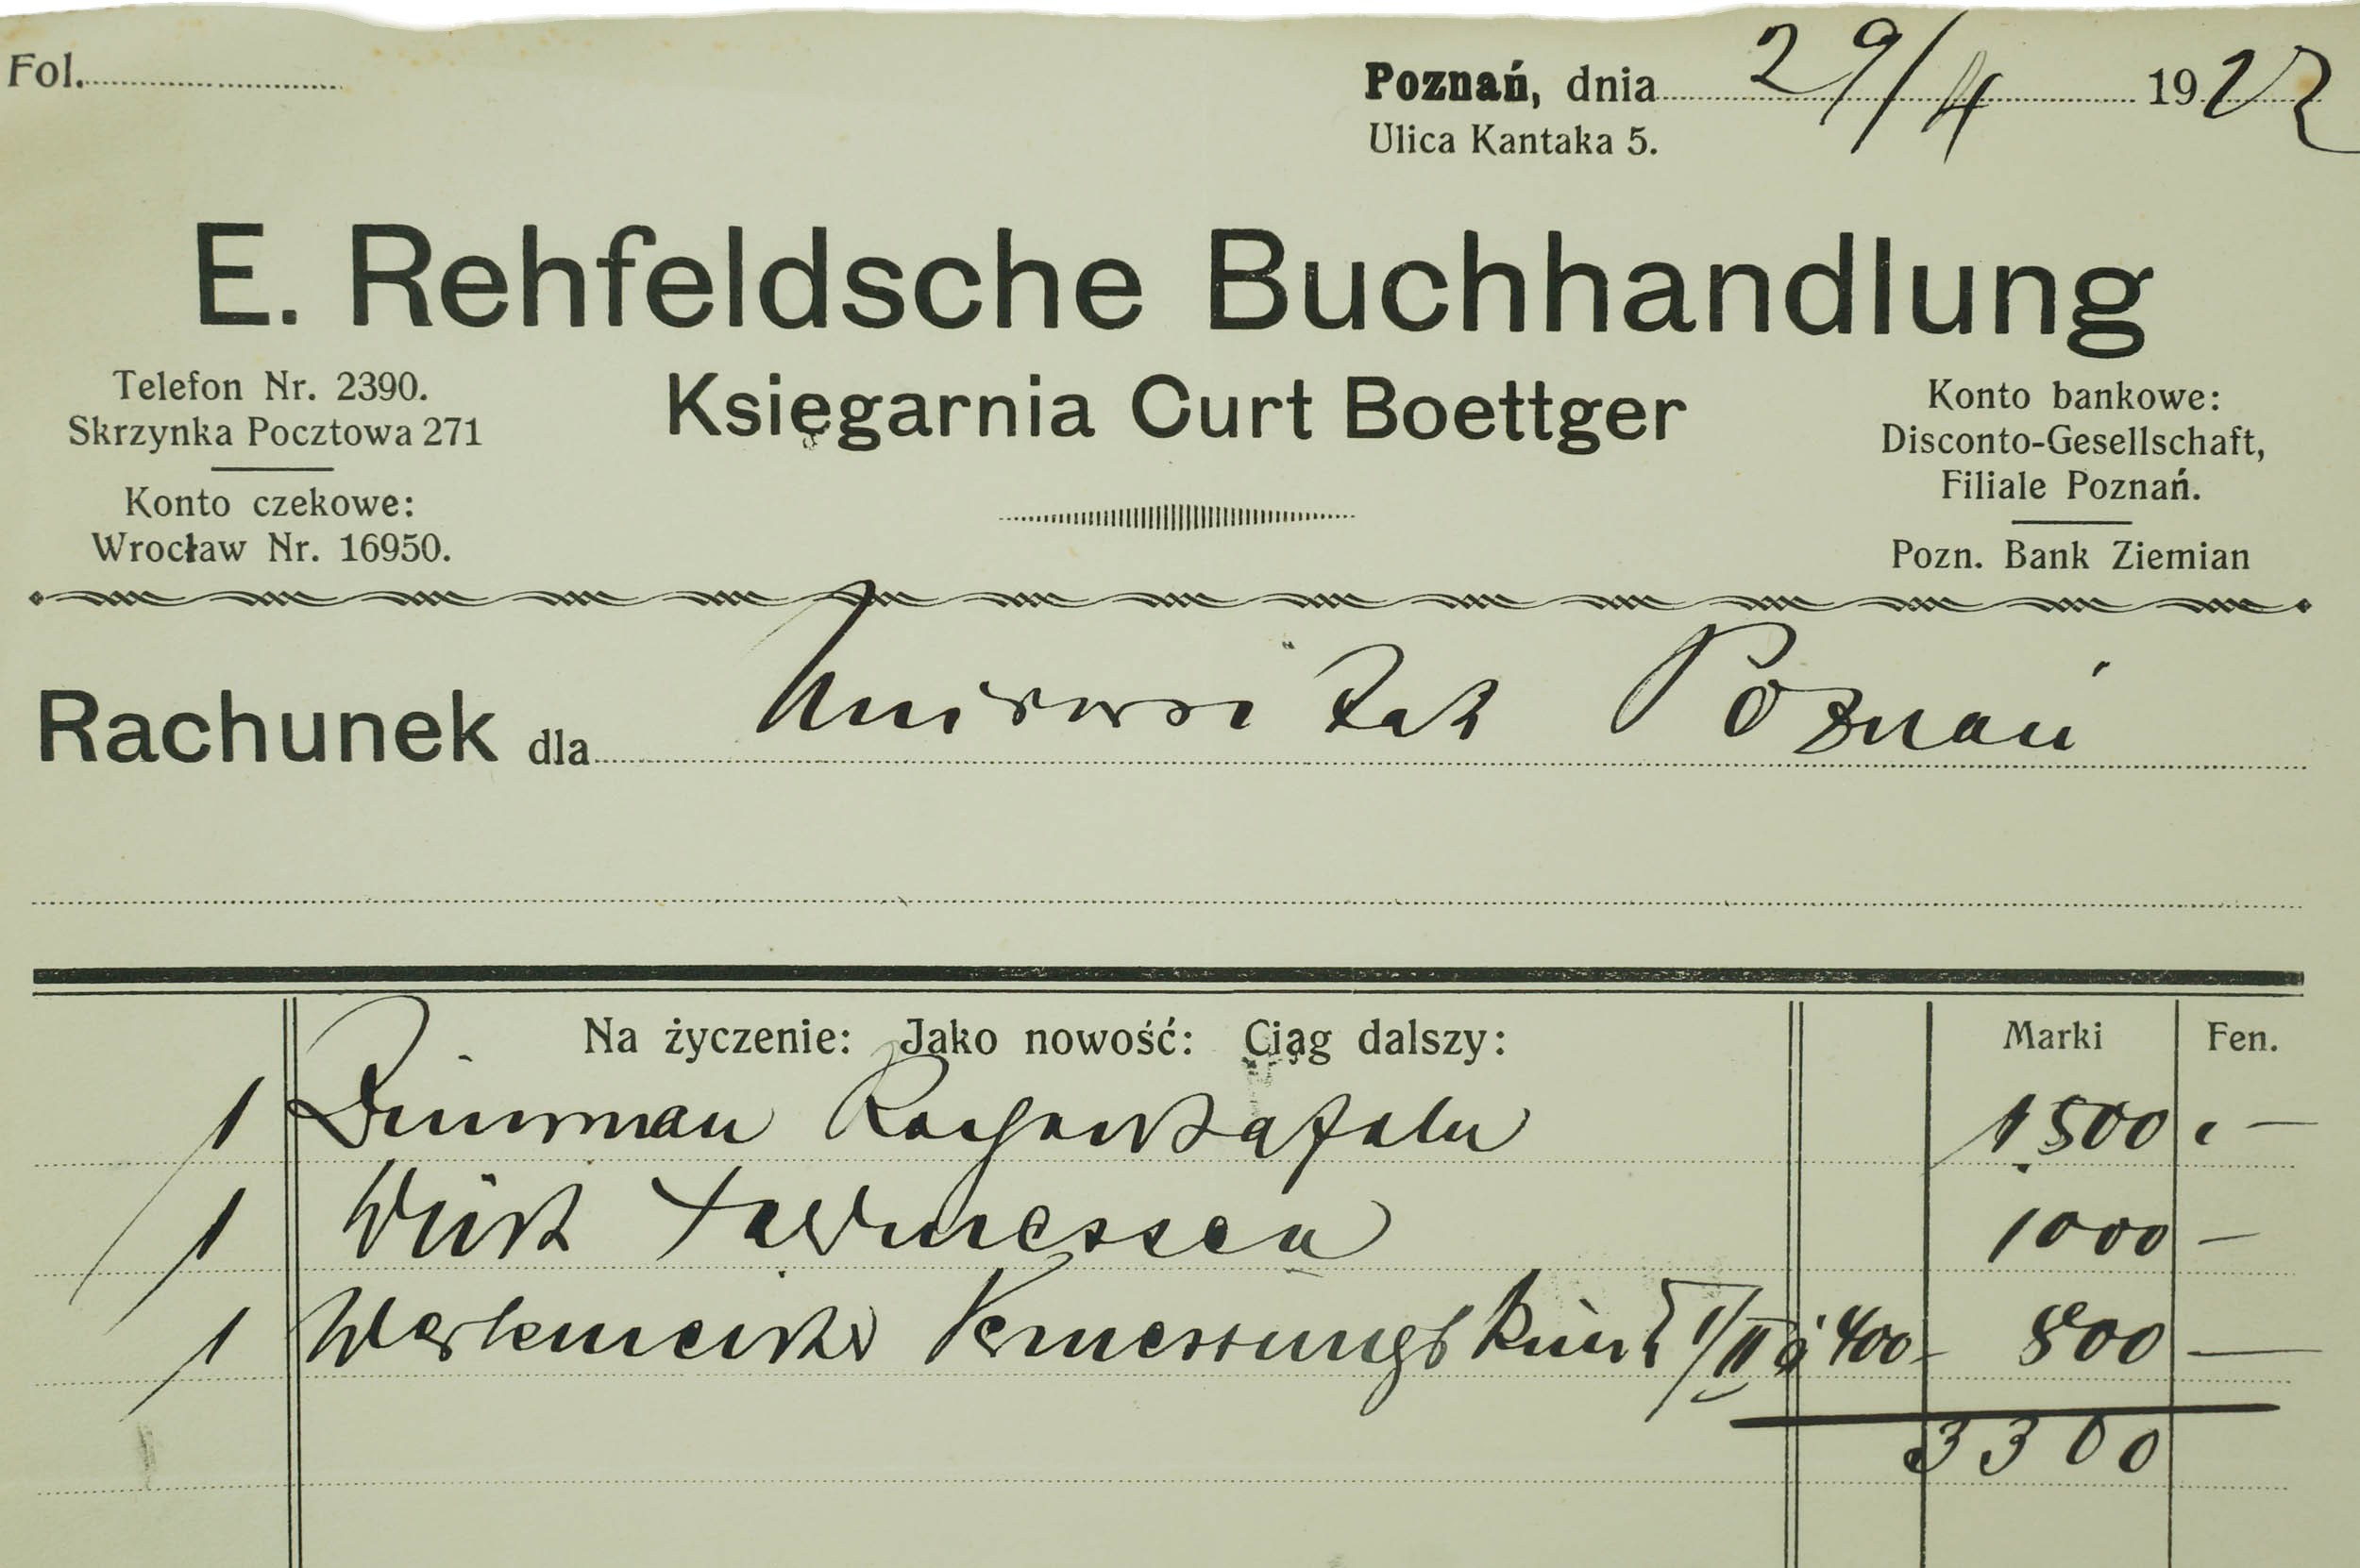 Fol.
Poznań, dnia 29/4 1922
Ulica Kantaka 5.
E. Rehfeldsche Buchhandlung
Telefon Nr. 2390.
Skrzynka Pocztowa 271
Księgarnia Curt Boettger
Konto bankowe:
Disconto-Gesellschaft,
Filiale Poznań.
Konto czekowe:
Wrocław Nr. 16950.
Pozn. Bank Ziemian
Rachunek dla Universität Poznań
Na życzenie: Jako nowość: Ciąg dalszy:
Marki Fen.
1 1500. —
1 1000 —
1 Werkmeister Vermessungskunde I/II à 400 — 800 —
3300